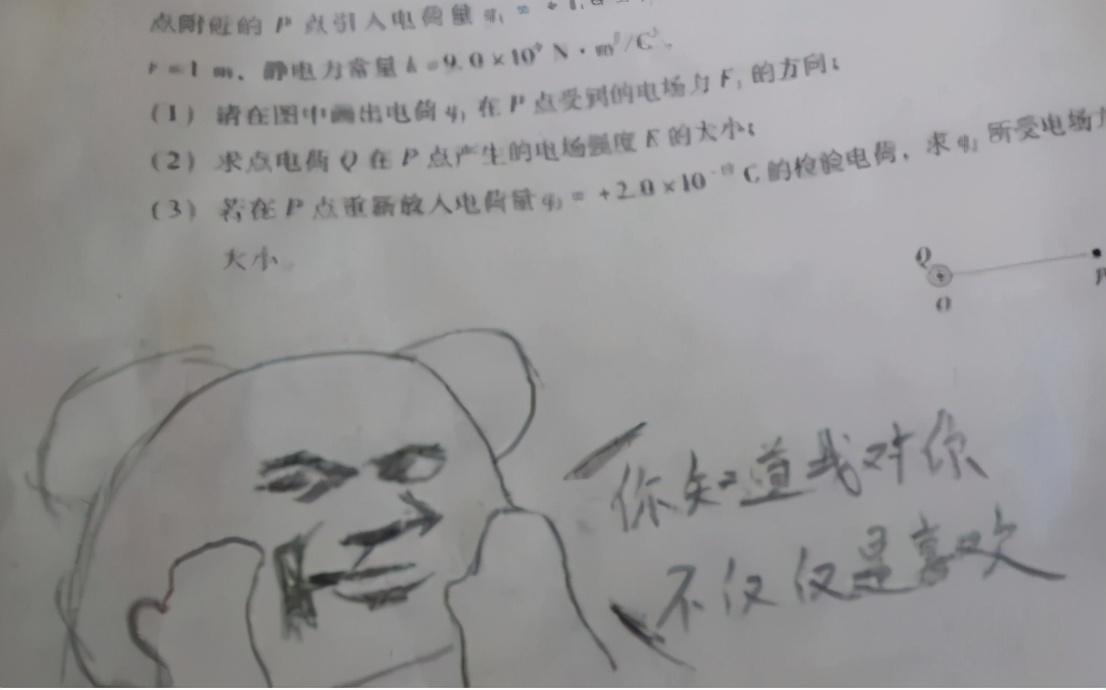 点附近的 P 点引入电荷量 q₁ = +1.
r = 1 m, 静电力常量 k = 9.0×10⁹ N·m²/C²,
(1) 请在图中画出电荷 q₁ 在 P 点受到的电场力 F₁ 的方向;
(2) 求点电荷 Q 在 P 点产生的电场强度 E 的大小;
(3) 若在 P 点重新放入电荷量 q₂ = +2.0×10 C 的检验电荷, 求 q₂ 所受电场力
大小。
Q
+
O
P
你知道我对你
不仅仅是喜欢